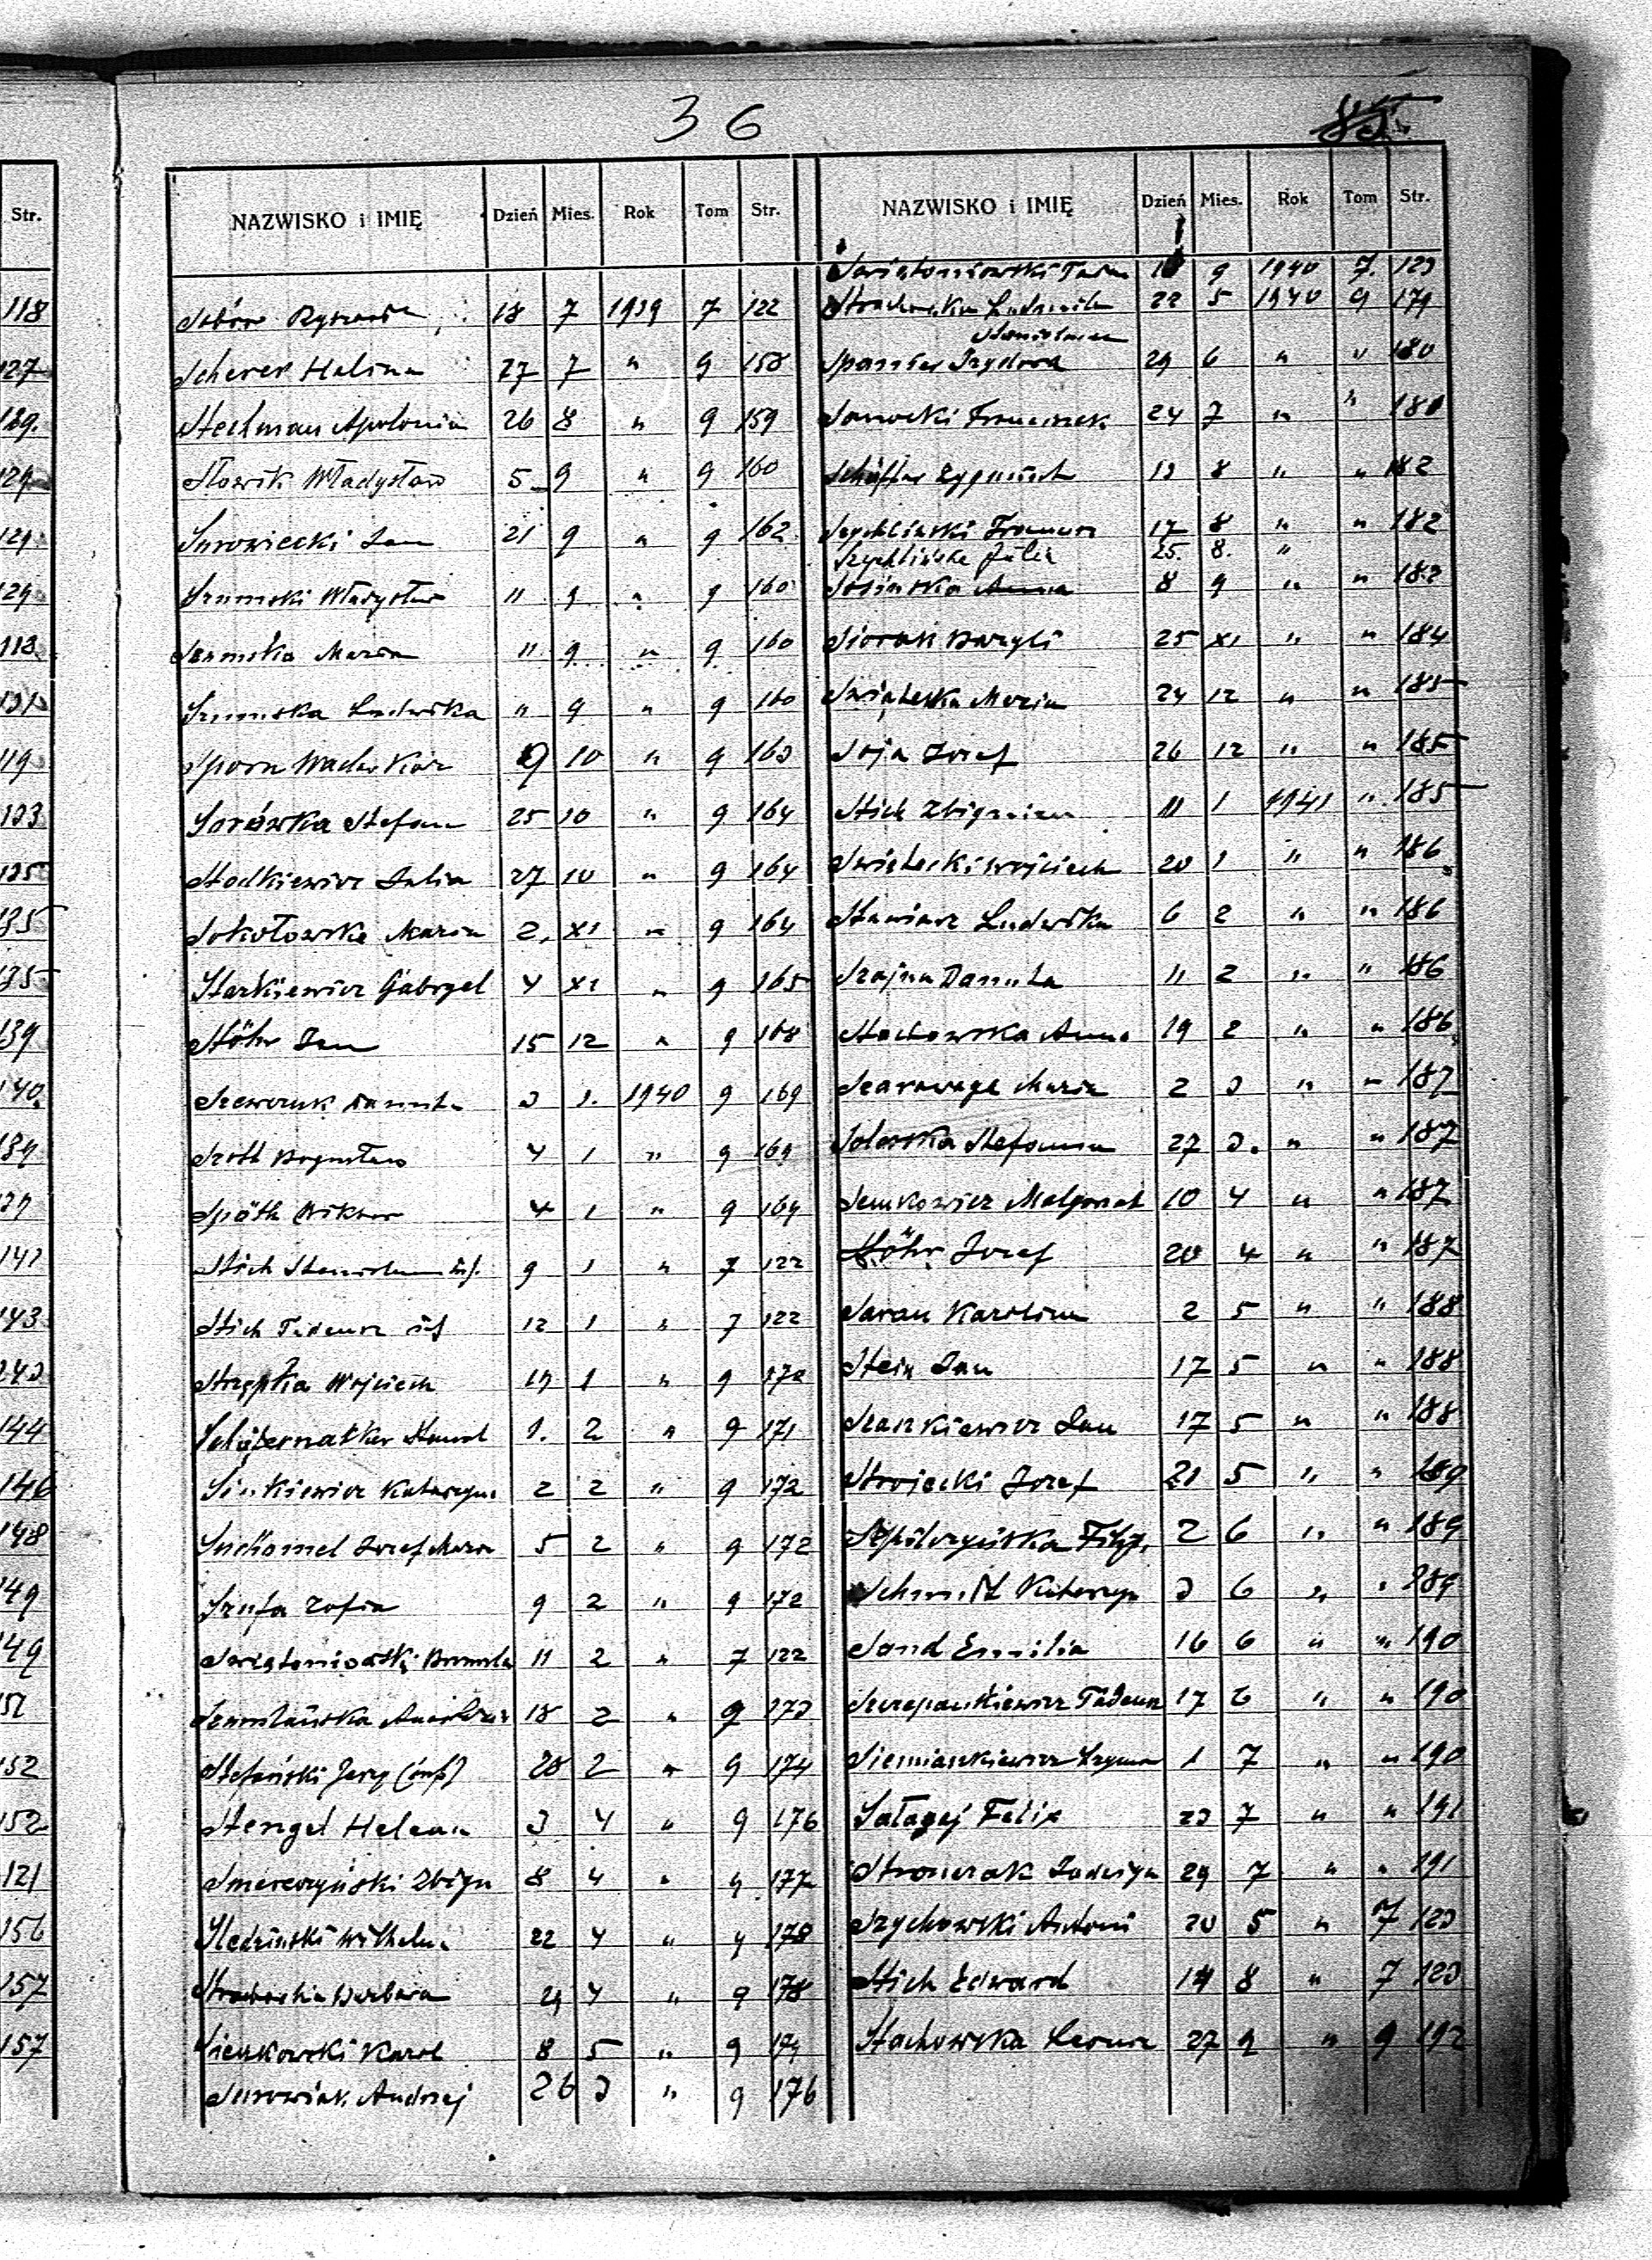 36
85
Str.
118
127
129.
129
129.
129
113.
131
119
123
125
135
135
139
140
139
129
141
143
143
144
146
148
149
149
151
152
152
121
156
157
157
NAZWISKO i IMIĘ Dzień Mies. Rok Tom Str.
18 7 1939 7 122
Scherer Halina 27 7 " 9 158
Stechman Apolonia 26 8 " 9 159
Słowik Władysław 5 9 " 9 160
Surowiecki Jan 21 9 " 9 162
Szumski Władysław 11 9 " 9 160
Szumska Maria 11 9 " 9 160
Szumska Ludwika " 9 " 9 160
Sporn 9 10 " 9 163
Sorówka Stefan 25 10 " 9 164
Stodkiewicz Julia 27 10 " 9 164
Sokołowska Maria 2. XI " 9 164
Starkiewicz Gabryel 4 XI " 9 165
Stöhr Jan 15 12 " 9 168
Szewczuk Danuta 3 1. 1940 9 169
Szott Bogusław 4 1 " 9 169
Späth Wiktor 4 1 " 9 169
Stich 9 1 " 7 122
Stich Tadeusz inf 12 1 " 7 122
Strzępka Wojciech 19 1 " 9 170
1. 2 " 9 171
Sinkiewicz Katarzyna 2 2 " 9 172
Suchomel Józef 5 2 " 9 172
Szufa Zofia 9 2 " 9 172
11 2 " 7 122
18 2 " 9 173
Stefański Jerzy (inf) 28 2 " 9 174
Stengel Helena 3 4 " 9 176
Smerczyński Zbign 8 4 " 9 177
Śledziński Wilhelm 22 4 " 9 178
Barbara 29 4 " 9 178
Sienkowski Karol 8 5 " 9 179
Surowiak Andrzej 26 3 " 9 176
NAZWISKO i IMIĘ Dzień Mies. Rok Tom Str.
9 1940 7. 123
22 5 1940 9 179
Stanisława
Izydora 29 6 " " 180
Sanocki Franciszek 24 7 " " 180
Schäffer Zygmunt 13 8 " " 182
Szychliński Franciszek 17 8 " " 182
Szychlińska Julia 25. 8. "
Sosińska Anna 8 9 " " 183
Siorak Bazyli 25 XI " " 184
Świątecka Maria 24 12 " " 185
Soja Józef 26 12 " " 185
Stich Zbigniew 11 1 1941 " 185
Świątecki Wojciech 20 1 " " 186
Ludwika 6 2 " " 186
Szajna Danuta 11 2 " " 186
Stachowska Anna 19 2 " " 186
Szarawaga Maria 2 3 " " 187
Solarska Stefania 27 3. " " 187
Semkowicz Małgorzat 10 4 " " 187
Stöhr Józef 20 4 " " 187
Saran Karolina 2 5 " " 188
Stein Jan 17 5 " " 188
Staszkiewicz Jan 17 5 " " 188
Strojecki Józef 21 5 " " 189
2 6 " " 189
Schmidt Katarzyn 3 6 " " 189
Sand Emilia 16 6 " " 190
Szczepankiewicz Tadeusz 17 6 " " 190
Siemiaszkiewicz Szymon 1 7 " " 190
Sałagaj Felix 23 7 " " 191
Stronczak Jadwiga 29 7 " " 191
Szychowski Antoni 20 5 " 7 123
Stich Edward 14 8 " 7 123
Stachowska 27 9 " 9 192